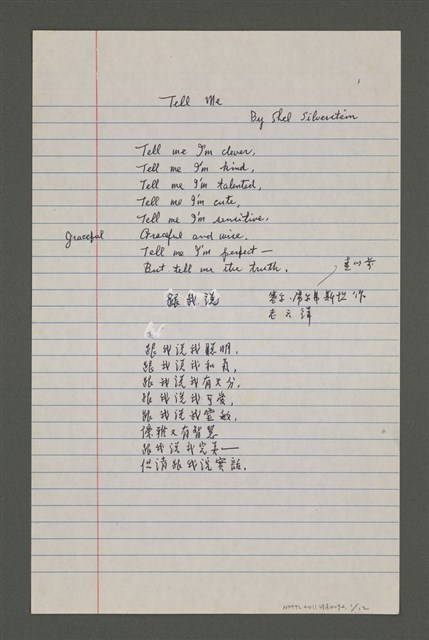 Tell Me
By Shel Silverstein
Tell me I'm clever,
Tell me I'm kind,
Tell me I'm talented,
Tell me I'm cute,
Tell me I'm sensitive,
Graceful Graceful and wise.
Tell me I'm perfect—
But tell me the truth.
跟我说
作
老六譯
跟我说我聪明,
跟我说我和真,
跟我说我有天分,
跟我说我可爱,
跟我说我靈敏,
優雅又有智慧
跟我说我完美——
但請跟我说實話.